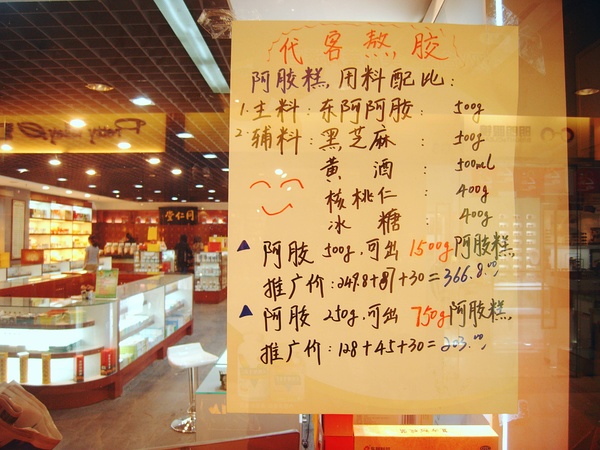 代客熬胶
阿胶糕,用料配比:
1.主料:东阿阿胶: 500g
2.辅料:黑芝麻: 500g
黄酒: 500ml
核桃仁: 400g
冰糖: 400g
▲阿胶500g.可出1500g阿胶糕.
推广价:249.8+87+30=366.8.00
▲阿胶250g.可出750g阿胶糕.
推广价:128+45+30=203.00
同仁堂